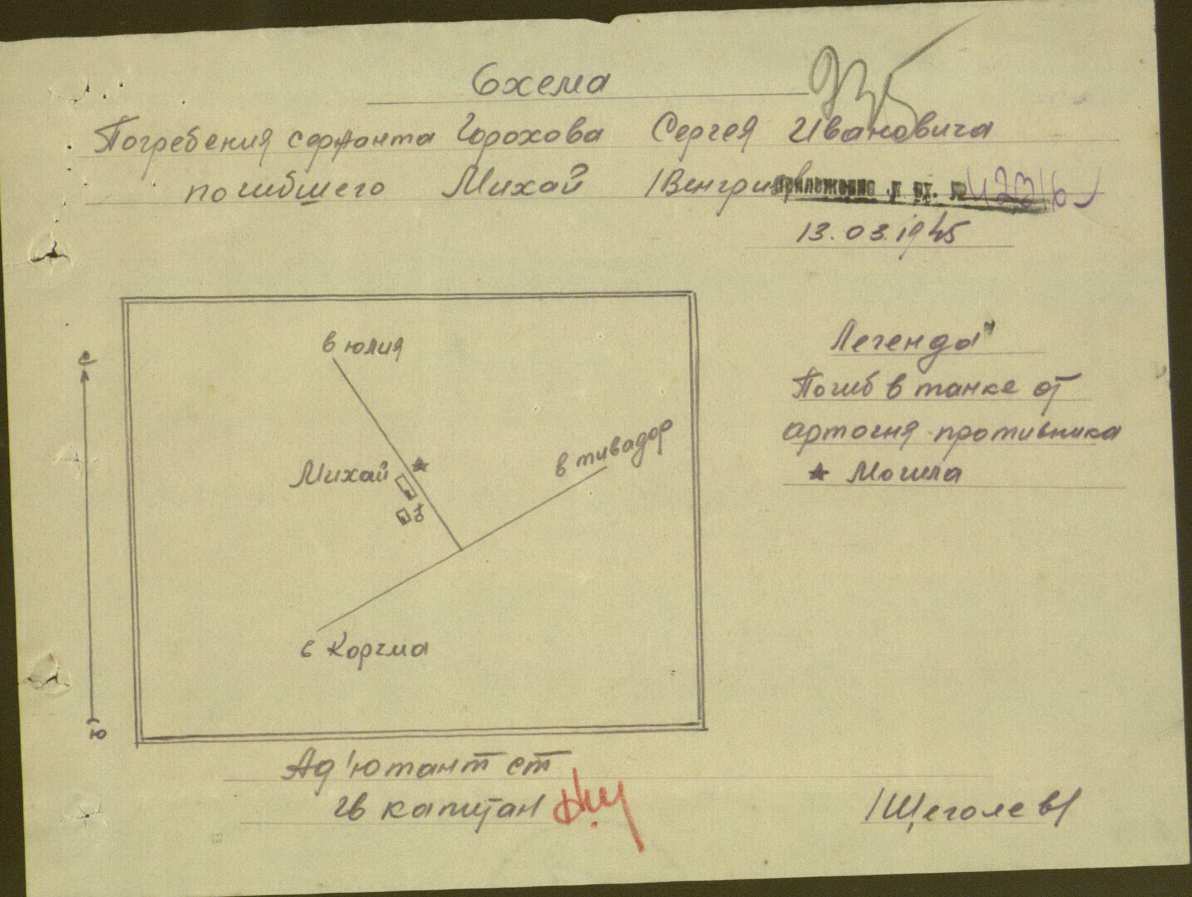 Схема
Погребения сержанта Горохова Сергея Ивановича
погибшего Михай /Венгрия
приложение к вх. №
13.03.1945
с
ю
в юлия
Михай
в тивадор
в Корчма
Легенда
Погиб в танке от
артогня противника
Могила
Ад'ютант ст
гв капитан
/Щеголев/